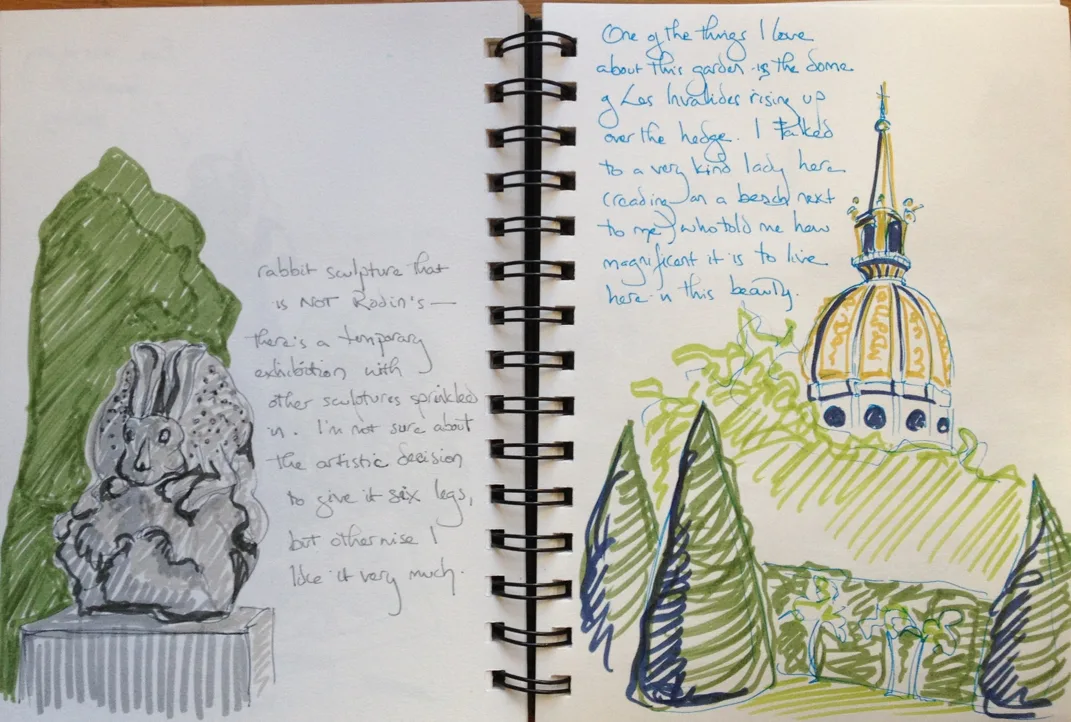 rabbit sculpture that
is NOT Rodin's —
there's a temporary
exhibition with
other sculptures sprinkled
in. I'm not sure about
the artistic decision
to give it six legs,
but otherwise I
like it very much.
One of the things I love
about this garden is the dome
of Les Invalides rising up
over the hedge. I talked
to a very kind lady here
(reading on a bench next
to me) who told me how
magnificent it is to live
here in this beauty.